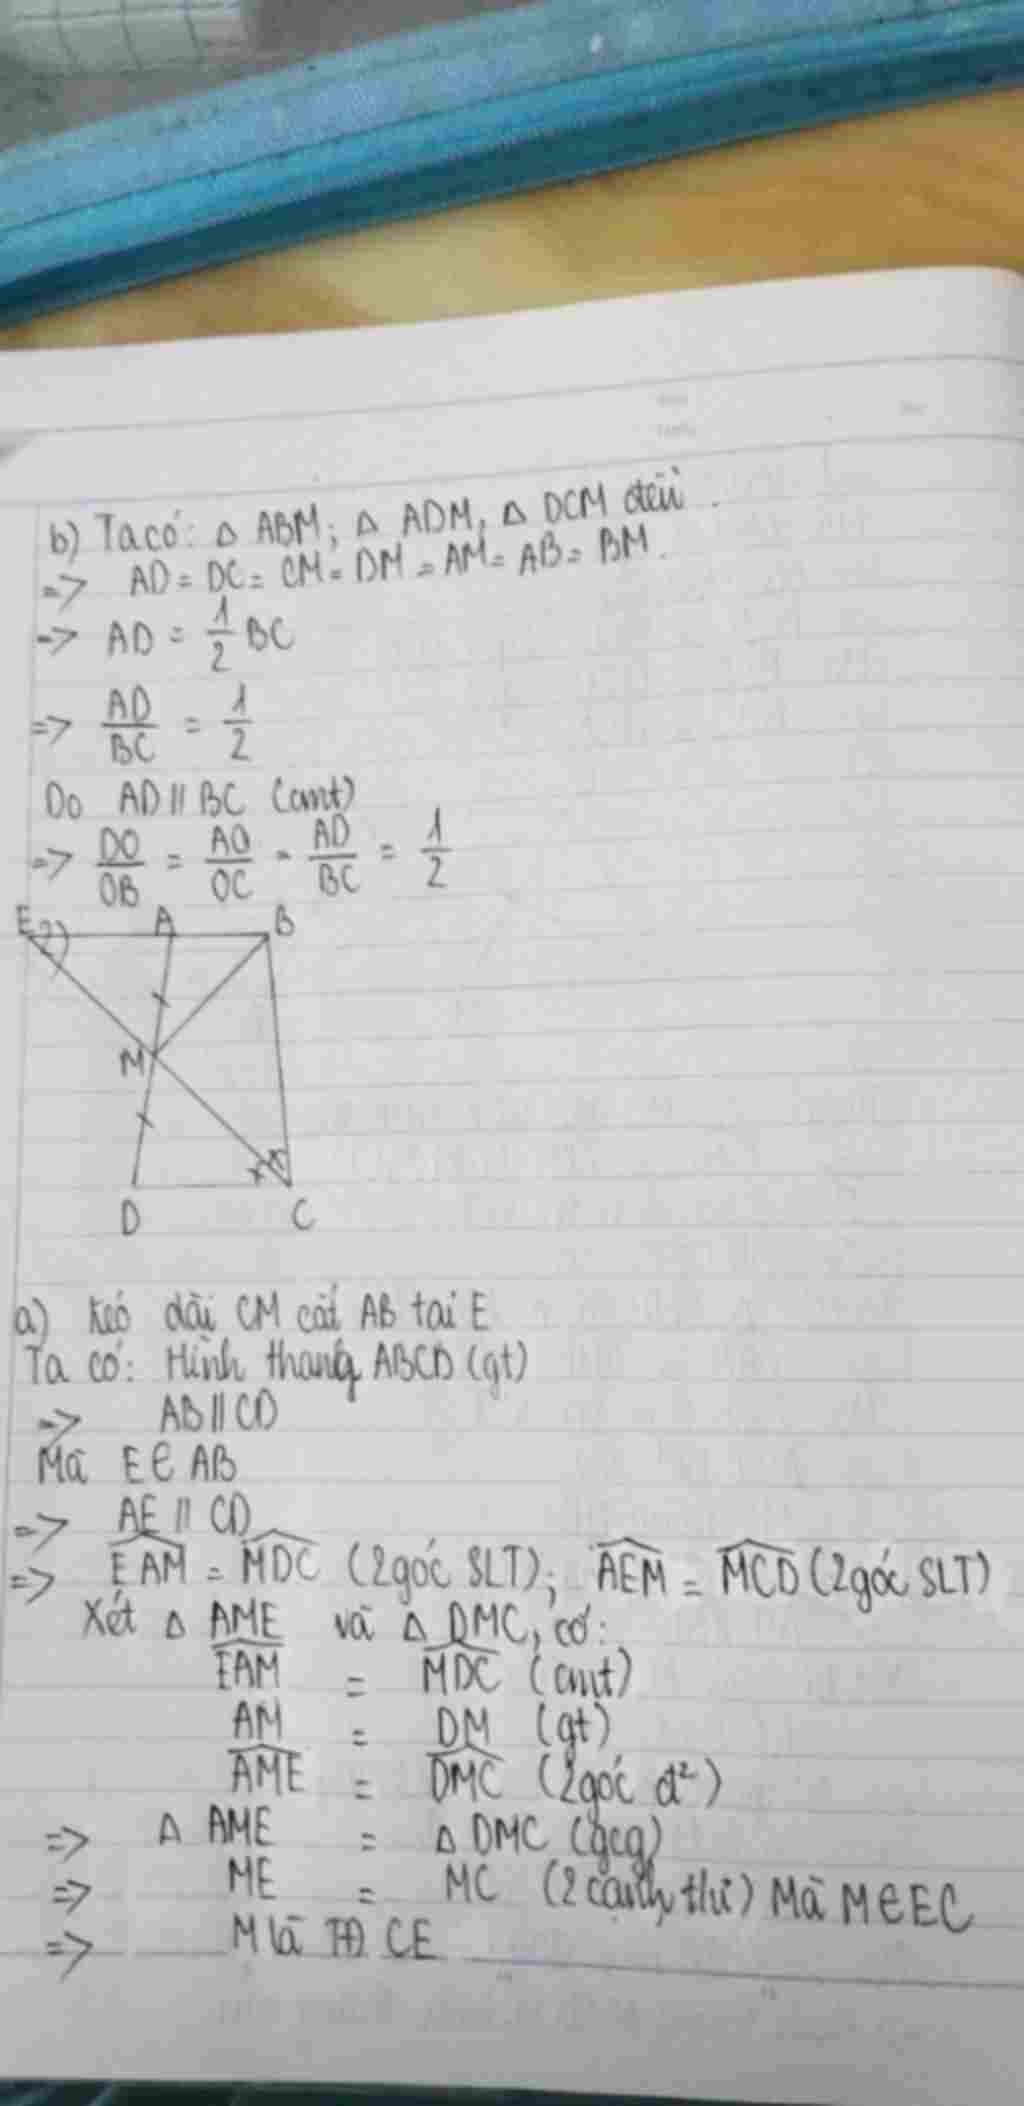 b) Ta có: Δ ABM; Δ ADM, Δ DCM đều.
=> AD = DC = CM = DM = AM = AB = BM.
=> AD = 1/2 BC
=> AD/BC = 1/2
Do AD // BC (cmt)
=> DO/OB = AO/OC = AD/BC = 1/2
2)
E A B
M
D C
a) Kéo dài CM cắt AB tại E
Ta có: Hình thang ABCD (gt)
=> AB // CD
Mà E ∈ AB
=> AE // CD
=> \widehat{EAM} = \widehat{MDC} (2 góc SLT); \widehat{AEM} = \widehat{MCD} (2 góc SLT)
Xét Δ AME và Δ DMC, có:
\widehat{EAM} = \widehat{MDC} (cmt)
AM = DM (gt)
\widehat{AME} = \widehat{DMC} (2 góc đ²)
=> Δ AME = Δ DMC (gcg)
=> ME = MC (2 cạnh t/ư) Mà M ∈ EC
=> M là TĐ CE